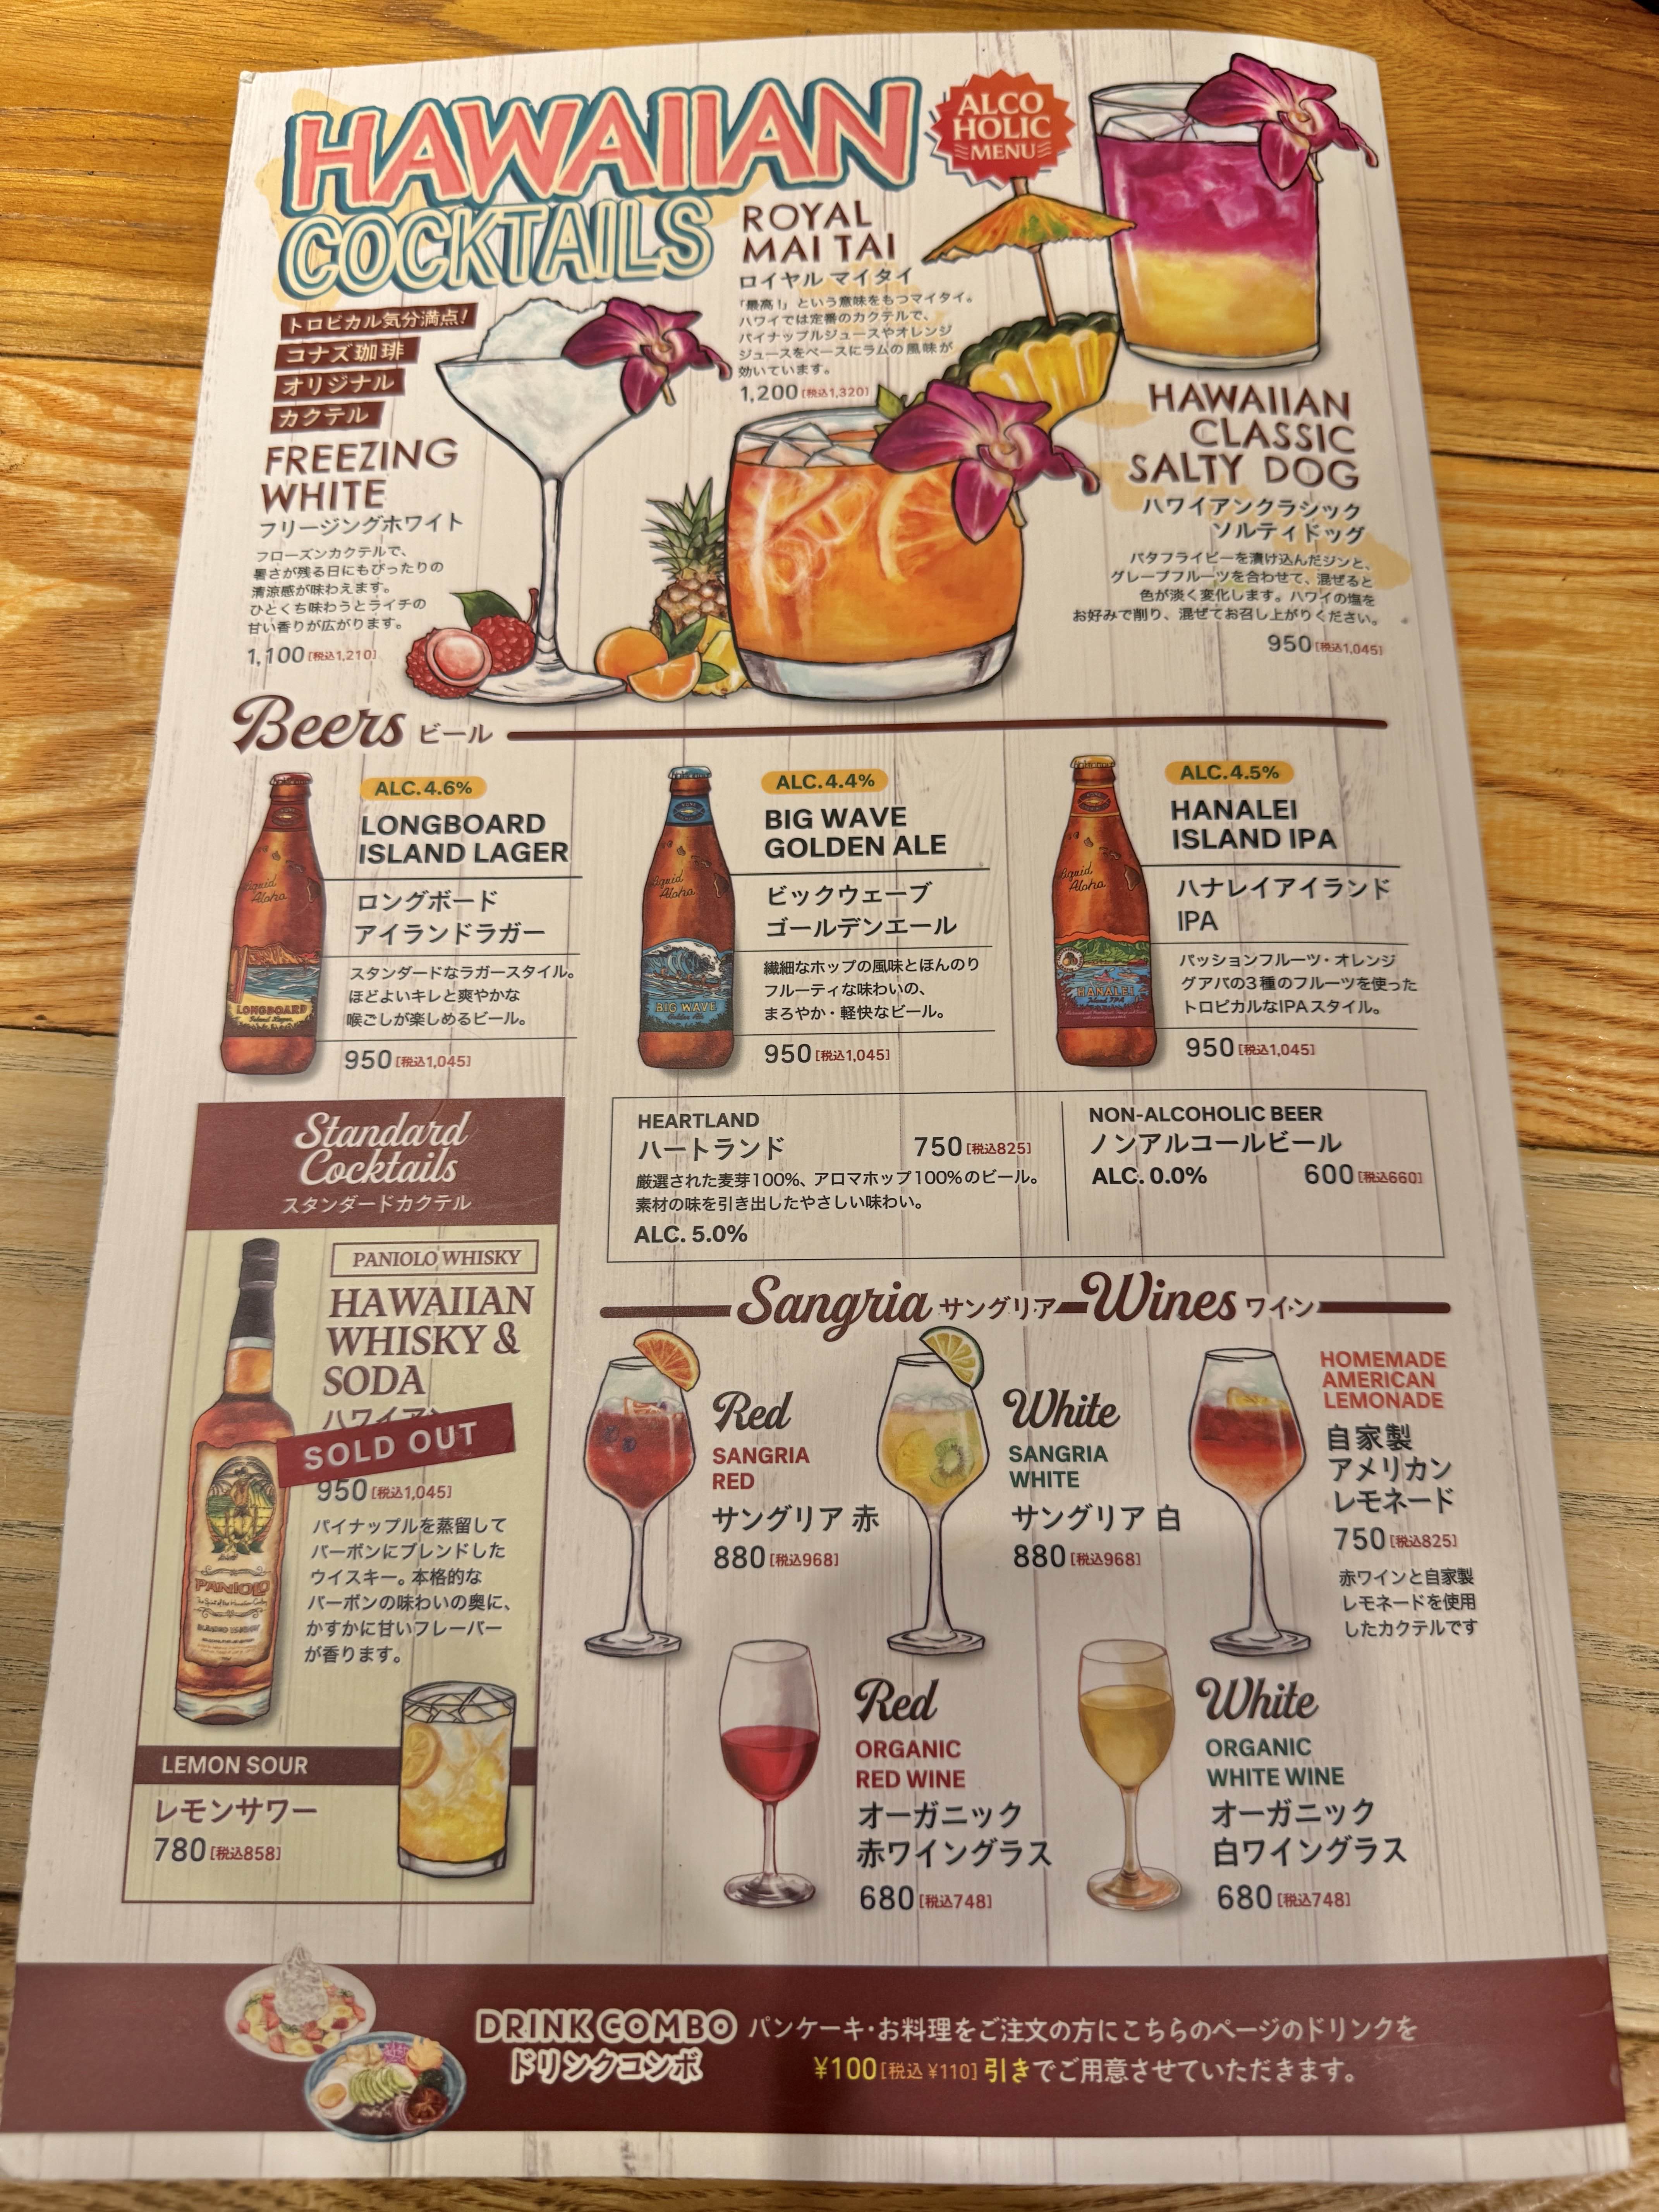 HAWAIIAN
COCKTAILS
ALCO
HOLIC
MENU
トロピカル気分満点!
コナズ珈琲
オリジナル
カクテル
FREEZING
WHITE
フリージングホワイト
フローズンカクテルで、
暑さが残る日にもぴったりの
清涼感が味わえます。
ひとくち味わうとライチの
甘い香りが広がります。
1,100 [税込1,210]
ROYAL
MAI TAI
ロイヤル マイタイ
「最高!」という意味をもつマイタイ。
ハワイでは定番のカクテルで、
パイナップルジュースやオレンジ
ジュースをベースにラムの風味が
効いています。
1,200 [税込1,320]
HAWAIIAN
CLASSIC
SALTY DOG
ハワイアンクラシック
ソルティドッグ
バタフライピーを漬け込んだジンと、
グレープフルーツを合わせて、混ぜると
色が淡く変化します。ハワイの塩を
お好みで削り、混ぜてお召し上がりください。
950 [税込1,045]
Beers ビール
ALC.4.6%
LONGBOARD
ISLAND LAGER
ロングボード
アイランドラガー
スタンダードなラガースタイル。
ほどよいキレと爽やかな
喉ごしが楽しめるビール。
950 [税込1,045]
Liquid
Aloha
LONGBOARD
Island Lager
ALC.4.4%
BIG WAVE
GOLDEN ALE
ビックウェーブ
ゴールデンエール
繊細なホップの風味とほんのり
フルーティな味わいの、
まろやか・軽快なビール。
950 [税込1,045]
Liquid
Aloha
BIG WAVE
Golden Ale
ALC.4.5%
HANALEI
ISLAND IPA
ハナレイアイランド
IPA
パッションフルーツ・オレンジ
グアバの3種のフルーツを使った
トロピカルなIPAスタイル。
950 [税込1,045]
Liquid
Aloha
HANALEI
Island IPA
HEARTLAND
ハートランド 750 [税込825]
厳選された麦芽100%、アロマホップ100%のビール。
素材の味を引き出したやさしい味わい。
ALC. 5.0%
NON-ALCOHOLIC BEER
ノンアルコールビール
ALC. 0.0% 600 [税込660]
Standard
Cocktails
スタンダードカクテル
PANIOLO WHISKY
HAWAIIAN
WHISKY &
SODA
ハワイアン
SOLD OUT
950 [税込1,045]
パイナップルを蒸留して
バーボンにブレンドした
ウイスキー。本格的な
バーボンの味わいの奥に、
かすかに甘いフレーバー
が香ります。
PANIOLO
LEMON SOUR
レモンサワー
780 [税込858]
Sangria サングリア Wines ワイン
Red
SANGRIA
RED
サングリア 赤
880 [税込968]
White
SANGRIA
WHITE
サングリア 白
880 [税込968]
HOMEMADE
AMERICAN
LEMONADE
自家製
アメリカン
レモネード
750 [税込825]
赤ワインと自家製
レモネードを使用
したカクテルです
Red
ORGANIC
RED WINE
オーガニック
赤ワイングラス
680 [税込748]
White
ORGANIC
WHITE WINE
オーガニック
白ワイングラス
680 [税込748]
DRINK COMBO
ドリンクコンボ
パンケーキ・お料理をご注文の方にこちらのページのドリンクを
¥100 [税込 ¥110] 引きでご用意させていただきます。